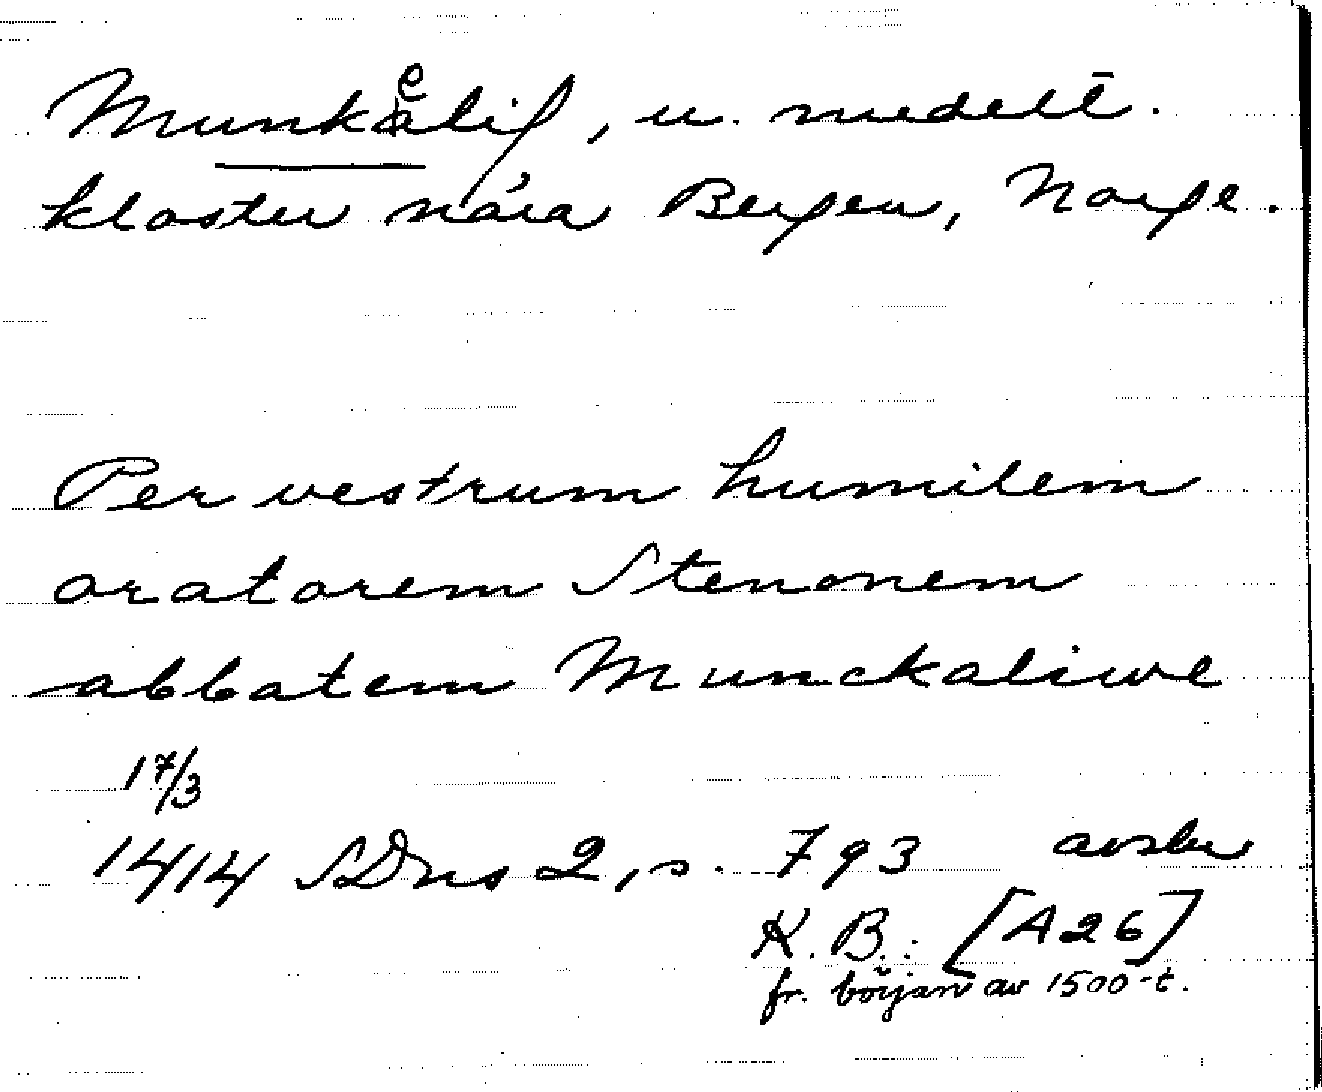 Munkelif, u. medelt.
kloster nära Bergen, Norge.
Per vestrum humilem
oratorem Stenonem
abbatem Munckaliwe
17/3
1414 SDns 2, s. 793 avskr
K. B.: [A26]
fr. början av 1500-t.